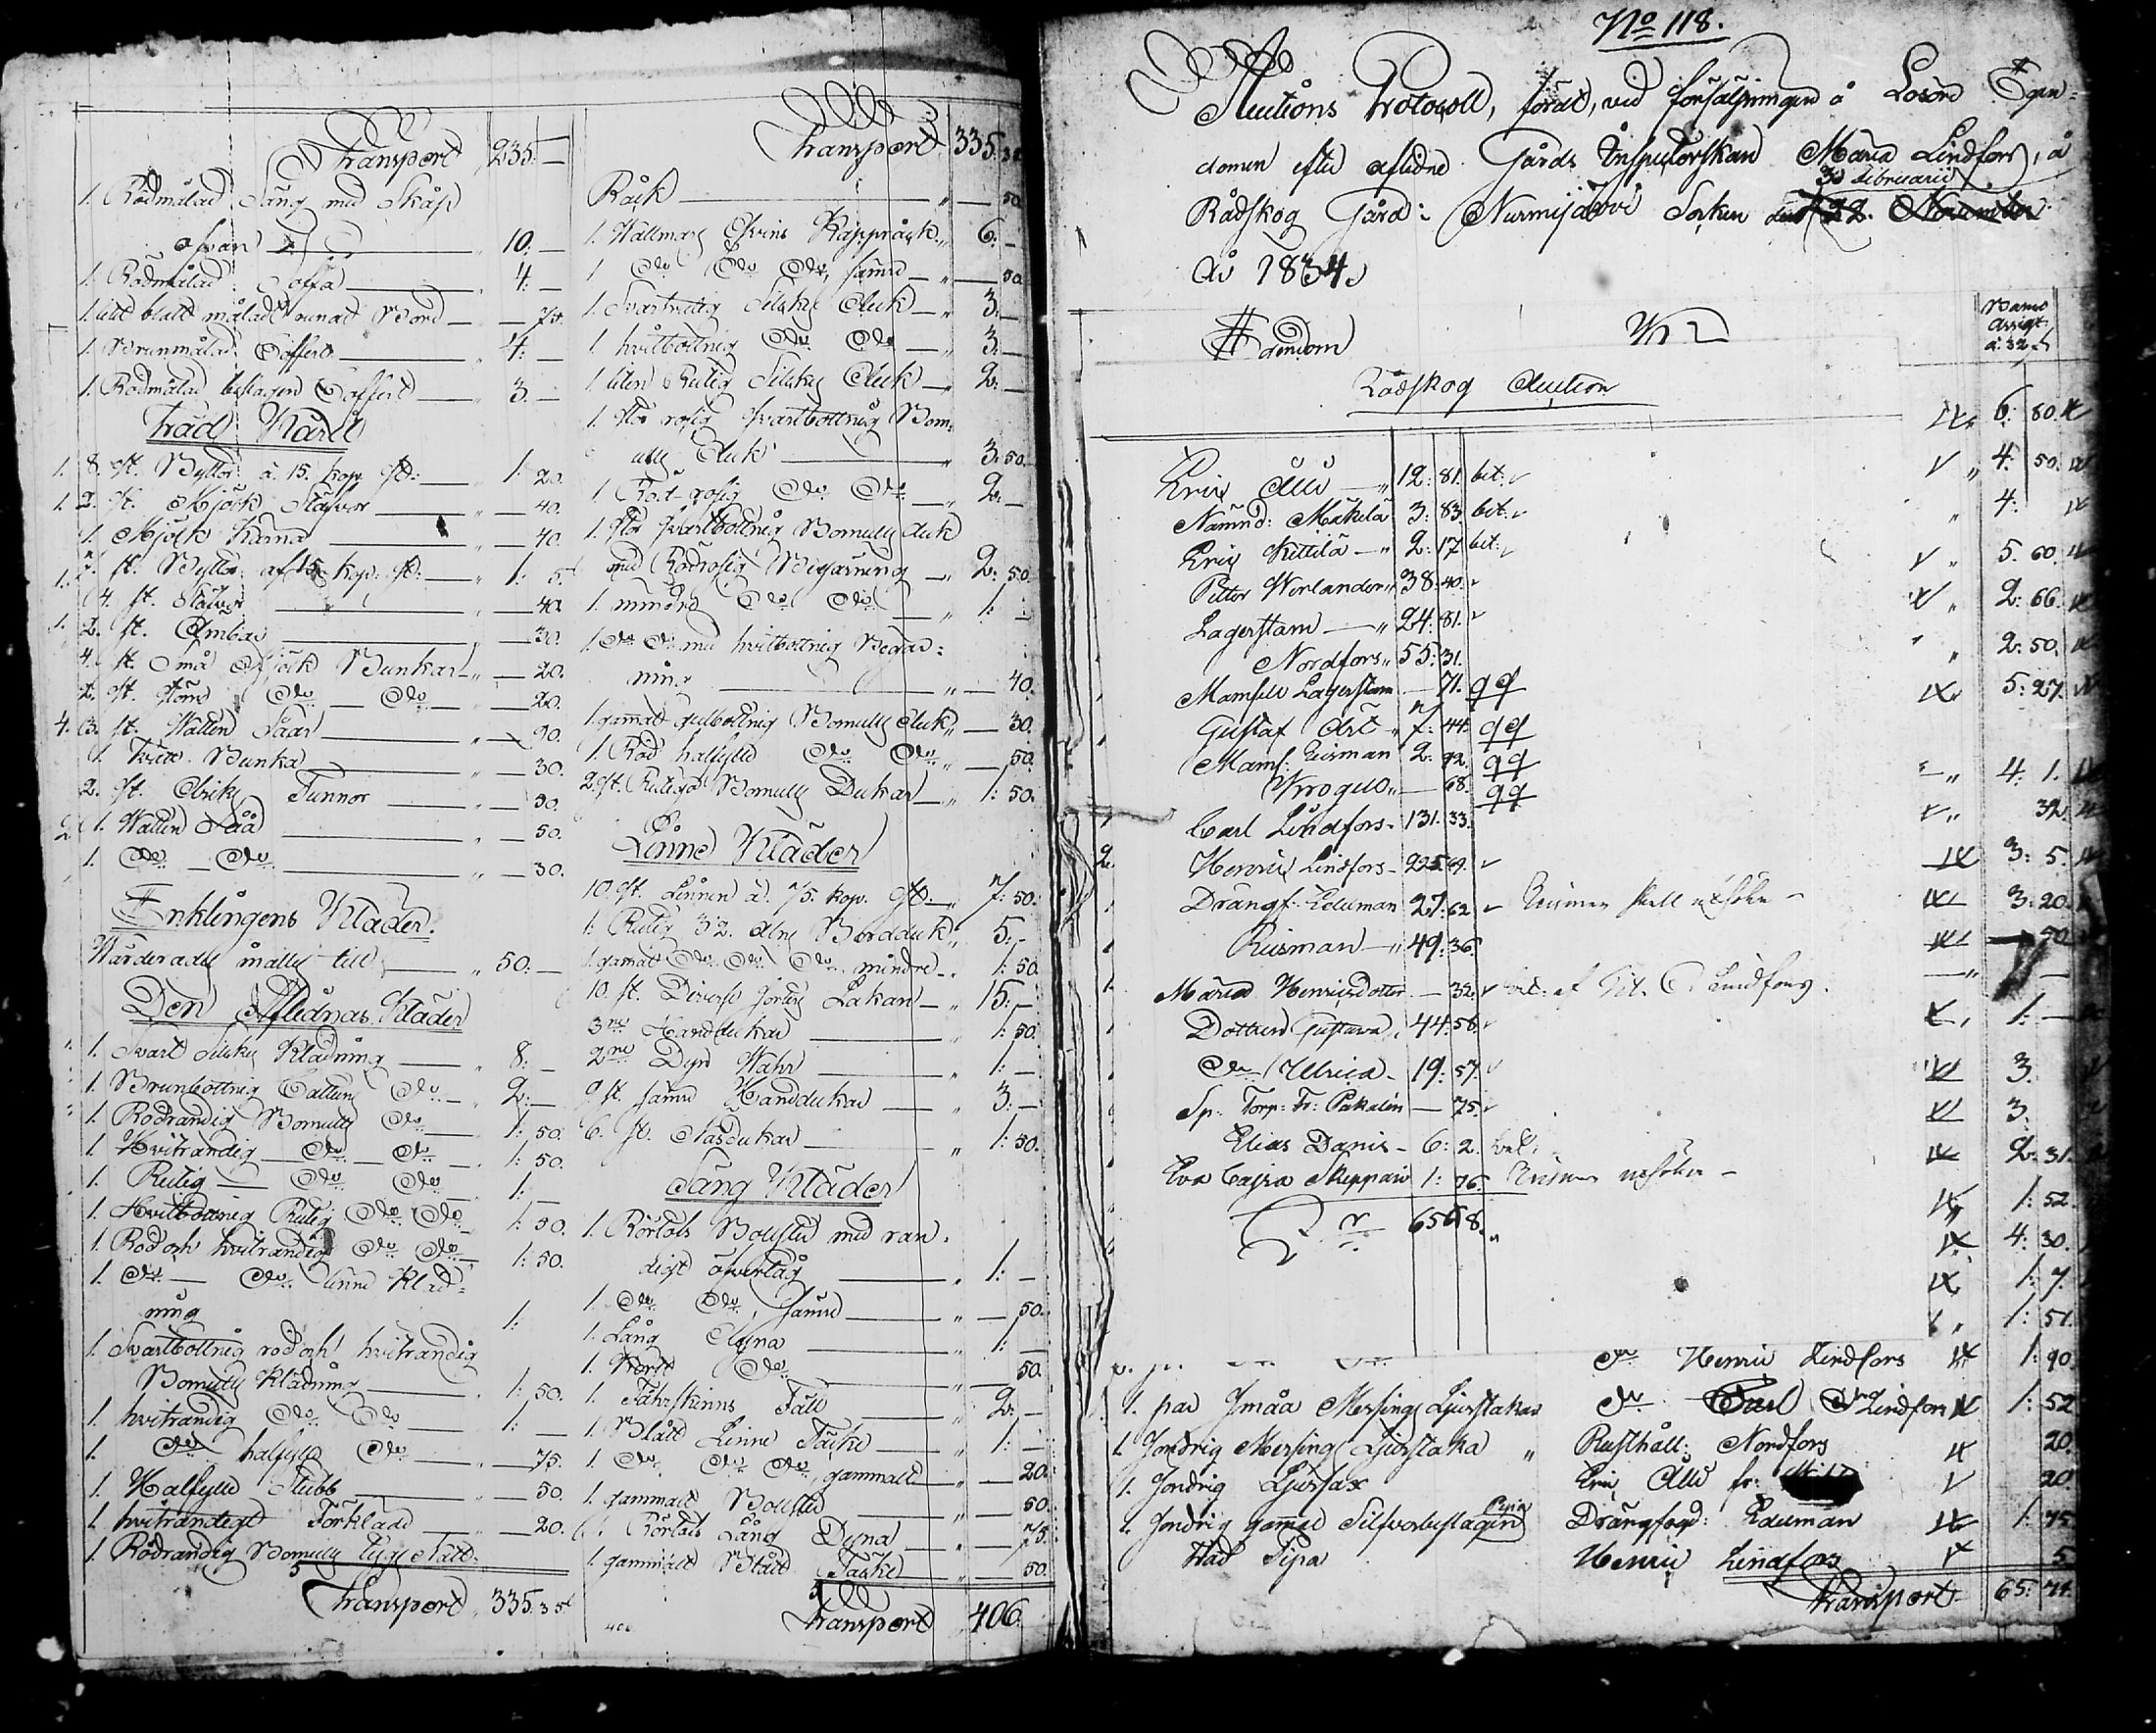 Transport 235.—
1. Rödmålad Säng med Skåp
ofvan 10:—
1. Rödmålad Soffa 4:—
1. litet blått måladt rundt Bord — 75.
1. Brunmålad Coffert 4:—
1. Rödmålad beslagen Coffert 3.—
Träd Kärill
8. st. Byttor à 15. kop. st: 1: 20.
2. st. Mjölk Stäfvor — 40.
1. Mjölk Kärna — 40.
7. st. Byttor af 15 kop. st: 1: 5.
4. st. Stäfvor — 40
2. st. Embar — 30.
4. st. Små Mjölk Bunkar — 20.
2. st. större Do Do — 20.
3. st. Watten Såar — 90.
1. Tvätt Bunka — 30.
2. st. Dricks Tunnor — 90.
1. Watten Så — 50.
1. Do — Do — 30.
Enklingens Kläder.
Wärderades in alles till 50:—
Den Aflednas Kläder
1. Svart Silkes Klädning 8:—
1. Brunbottnig Cattuns Do 2:—
1. Rödrandig Bomulls Do 1: 50.
1. Hvitrandig Do — Do 1: 50.
1. Rutig — Do Do 1:—
1. Hvitbottnig Rutig Do Do 1: 50.
1. Röd och hvitrandig Do Do 1: 50.
1. Do — Do linne Kläd-
ning 1:
1. Svartbottnig röd och hvitrandig
Bomulls Klädning 1: 50.
1. hvitrandig Do Do 1:—
1. Do halfylle Do — 75.
1. Halfylle Stubb — 50.
1. hvitrandigt Förkläde — 20.
1. Rödrandig Bomulls tygs
Transport 335.35
Transport 335.35
Råck — 50
1. Wallmars Kapprock 6:—
1 Do Do Do, sämre — 50
1. Svartrutig Silkes Duk 3:—
1. hvitbottnig Do Do 3:—
1. liten Rutig Silkes Duk 2:—
1. stor rosig svartbottnig Bom-
ulls Duk 3: 50.
1. Röd rosig Do Do 2:—
1. stor svartbottnig Bomulls duk
med Rödrosig Begarning 2: 50.
1. mindre Do Do 1:
1. Do Do med hvitbottnig Begar-
ning — 40.
1. gammal gulbottnig Bomulls Duk — 30.
1. Röd halfylle Do Do — 50.
2. st. Rutiga Bomulls Dukar 1: 50.
Linne Kläder
10. st. Linnen à 75. kop. st: 7: 50.
1. Rutig 3 2. alns Bordduk 5:—
1. gamalt Do Do Do mindre 1: 50
10. st. Diverse sorters Lakan 15:—
3ne Handdukar 1: 50.
2ne Dyn Wahr 1:—
9 st. sämre Handdukar 3:—
6. st. Näsdukar 1: 50.
Säng Kläder
1. Rörlots Bolster med ran-
digt öfvertåg 1:—
1. Do Do, sämre — 50.
1. Lång Dyna 1:—
1. Kort Do — 50.
1. Fåhrskinns Fäll 2:—
1. Blått Linne Täcke 1:—
1. Do Do Do, gammalt — 20.
1. gammalt Bolster — 50.
1. Rörlots Lång Dyna — 75.
1. gammalt Blått Täcke — 50.
Transport 406.
No 118.
Auctions Protocoll, fördt, vid försäljningen å Lösöre Egen-
domen efter aflidne Gårds Inspectorskan Maria Lindfors, å
30 Februarii
Rådskog Gård: Nurmijärvi Socken den 22. November
År 1834.
Egendom
Banco
Assigt.
Rådskog Auction
Eric Alli 12: 81. bet:
Nämnd: Mäkelä 3: 83. bet:
Eric Kittilä 2: 17 bet:
Petter Werlander 38: 40.
Lagerstam 24: 81.
Nordfors 55: 31.
Mamsell Lagerstam — 71. qq
Gustaf 7: 44. qq
Mams: Reisman 2: 92. qq
Krogell — 68. qq
Carl Lindfors 131. 33.
Henric Lindfors 225 69.
Drängf. Edeman 27: 62
Reisman 49: 36.
Maria Henricsdotter — 32. bet: af Lindfors.
Dottren Gustava 44: 58.
Do Ulrica 19: 57.
Sp: Torp: Fr: Pakalén — 75.
Elias Danis 6: 2. bet.
Eva Cajsa Skeppari 1: 76.
656 8.
6: 80.
4: 50.
4:
5. 60.
2: 66.
2: 50.
5: 27.
4: 1.
32.
3: 5.
3: 20.
50
1: —
3.
3.
2: 31.
1: 52.
4: 30.
1: 7.
1: 51.
Do Henric Lindfors 1: 90.
1. par Småa Messings Ljusstakar Do Lindfors 1: 52
1. Söndrig Messings Ljusstaka Rusthåll: Nordfors 20.
1. Söndrig Ljussax Eric Alli fr: 20
1. Söndrig gamal Silfverbeslagen Pipa Drängfogd: Edeman 1: 75
Träd Pipa Henric Lindfors 5
Transport 65: 74.